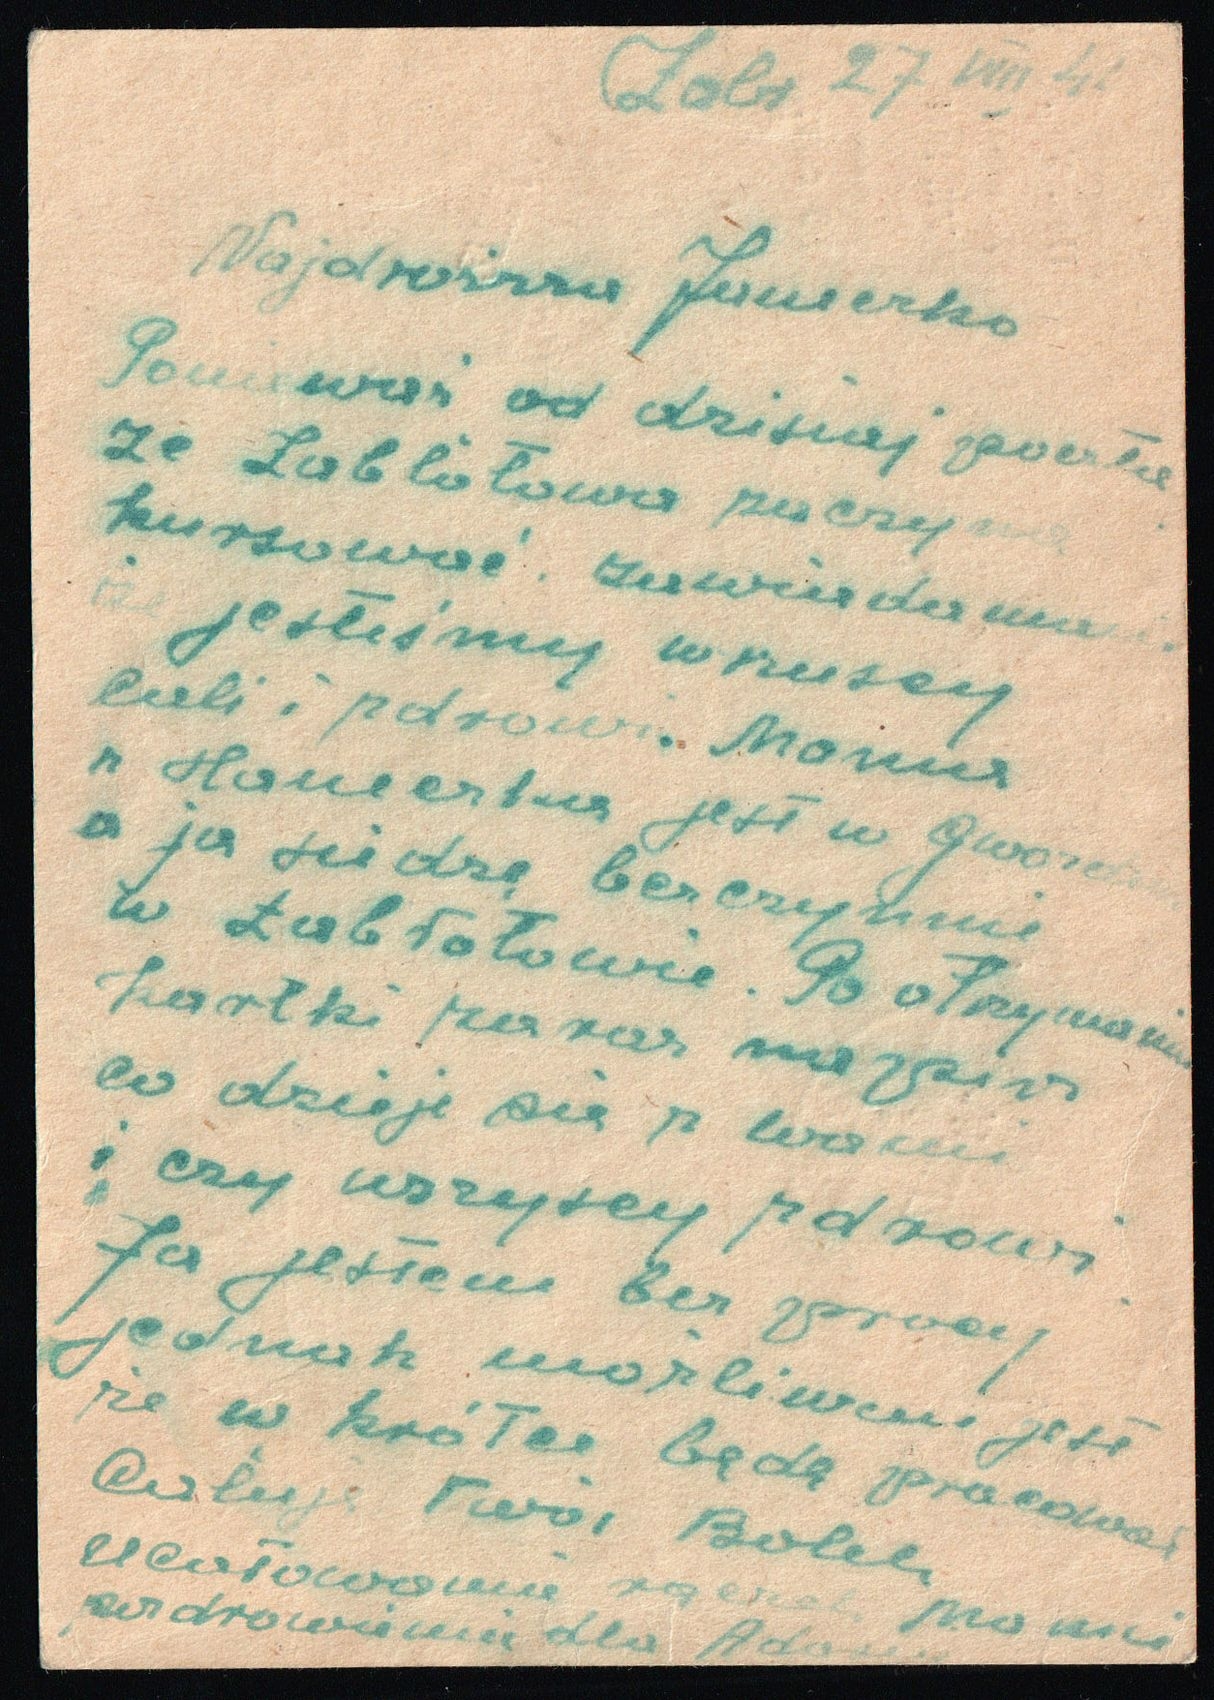 Zabł 27 VIII 41
Najdroższa Janeczko
Ponieważ od dzisiaj poczta
ze Zabłotowa zaczyna
kursować. zawiadamiam
że jesteśmy wszyscy
cali i zdrowi. Mama
z Haneczką jest w
a ja siedzę bezczynnie
w Zabłotowie. Po otrzymaniu
kartki zaraz napisz
co dzieje się z wami
i czy wszyscy zdrowi
Ja jestem bez pracy
jednak możliwem jest
że w krótce będę pracował
Całuję Twój Bolek
ucałowanie rączek Mamie
pozdrowienia dla Adama